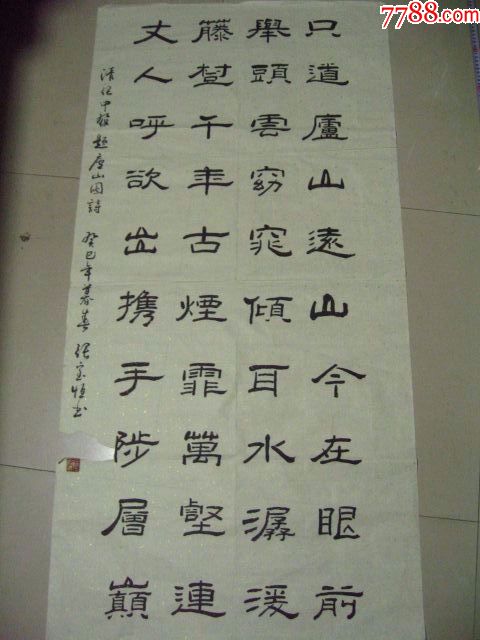 7788.com
只道廬山遠山今在眼前
舉頭雲窈窕傾耳水潺湲
藤樹千年古煙霏萬壑連
丈人呼欲出携手陟層巔
清 題廬山图詩 癸巳年暮春 張宝恒书